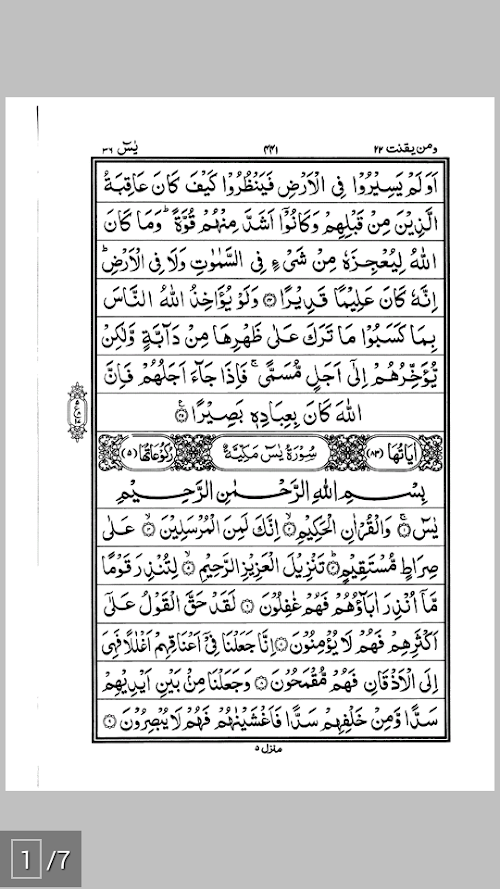 ومن یقنت ۲۲ ۴۴۱ یٰسٓ ۳۶
اَوَلَمْ یَسِیْرُوْا فِی الْاَرْضِ فَیَنْظُرُوْا كَیْفَ كَانَ عَاقِبَةُ
الَّذِیْنَ مِنْ قَبْلِهِمْ وَكَانُوْۤا اَشَدَّ مِنْهُمْ قُوَّةً ؕ وَمَا كَانَ
اللّٰهُ لِیُعْجِزَهٗ مِنْ شَیْءٍ فِی السَّمٰوٰتِ وَلَا فِی الْاَرْضِ ؕ
اِنَّهٗ كَانَ عَلِیْمًا قَدِیْرًا ﴿۴۴﴾ وَلَوْ یُؤَاخِذُ اللّٰهُ النَّاسَ
بِمَا كَسَبُوْا مَا تَرَكَ عَلٰى ظَهْرِهَا مِنْ دَآبَّةٍ وَّلٰكِنْ
یُّؤَخِّرُهُمْ اِلٰۤى اَجَلٍ مُّسَمًّى ۚ فَاِذَا جَآءَ اَجَلُهُمْ فَاِنَّ
اللّٰهَ كَانَ بِعِبَادِهٖ بَصِیْرًا ﴿۴۵﴾
اٰیَاتُهَا (۸۳) سُوْرَةُ یٰسٓ مَكِّیَّةٌ رُكُوْعَاتُهَا (۵)
بِسْمِ اللّٰهِ الرَّحْمٰنِ الرَّحِیْمِ
یٰسٓ ﴿۱﴾ وَالْقُرْاٰنِ الْحَكِیْمِ ﴿۲﴾ اِنَّكَ لَمِنَ الْمُرْسَلِیْنَ ﴿۳﴾ عَلٰى
صِرَاطٍ مُّسْتَقِیْمٍ ﴿۴﴾ تَنْزِیْلَ الْعَزِیْزِ الرَّحِیْمِ ﴿۵﴾ لِتُنْذِرَ قَوْمًا
مَّاۤ اُنْذِرَ اٰبَآؤُهُمْ فَهُمْ غٰفِلُوْنَ ﴿۶﴾ لَقَدْ حَقَّ الْقَوْلُ عَلٰۤى
اَكْثَرِهِمْ فَهُمْ لَا یُؤْمِنُوْنَ ﴿۷﴾ اِنَّا جَعَلْنَا فِیْۤ اَعْنَاقِهِمْ اَغْلٰلًا فَهِیَ
اِلَى الْاَذْقَانِ فَهُمْ مُّقْمَحُوْنَ ﴿۸﴾ وَجَعَلْنَا مِنْۢ بَیْنِ اَیْدِیْهِمْ
سَدًّا وَّمِنْ خَلْفِهِمْ سَدًّا فَاَغْشَیْنٰهُمْ فَهُمْ لَا یُبْصِرُوْنَ ﴿۹﴾
منزل ۵
1 /7